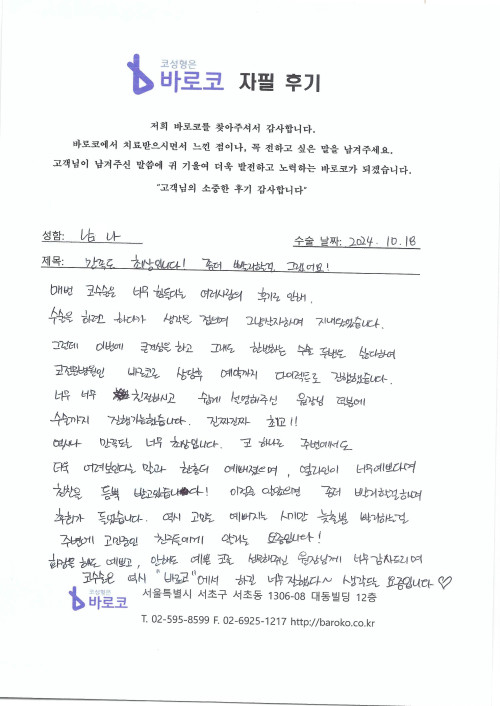 코성형은
바로코 자필 후기
저희 바로코를 찾아주셔서 감사합니다.
바로코에서 치료받으시면서 느낀 점이나, 꼭 전하고 싶은 말을 남겨주세요.
고객님이 남겨주신 말씀에 귀 기울여 더욱 발전하고 노력하는 바로코가 되겠습니다.
"고객님의 소중한 후기 감사합니다"
성함: 나 수술 날짜: 2024. 10. 18
제목: 만족도 최상입니다! 좀더 빨리할걸 그랬어요!
매번 코수술은 너무 힘들다는 여러사람의 후기로 인해,
수술을 하려고 하다가 생각을 접으며 그냥산자하며 지내왔었습니다.
그런데 이번에 큰결심을 하고 그래도 한번하는 수술 두번은 싫다하여
코전문병원인 바로코로 상담후 예약까지 다이렉트로 진행했습니다.
너무 너무 친절하시고 쉽게 설명해주신 원장님 덕분에
수술까지 진행가능했습니다. 진짜진짜 최고!!
역시나 만족도는 너무 최상입니다. 코 하나로 주변에서도
더욱 어려보인다는 말과 한층더 예뻐졌으며, 옆라인이 너무예쁘다며
칭찬을 듬뿍 받고있습니다! 이런줄 알았으면 좀더 빨리할걸하며
후회가 되었습니다. 역시 고민은 예뻐지는 시기만 늦출뿐 빨리하는걸
주변에 고민중인 친구들에게 알리는 요즘입니다!
화장을 해도 예쁘고, 안해도 예쁜 코로 변화해주신 원장님께 너무감사드리며
코수술은 역시 "바로코"에서 하길 너무잘했다~ 생각되는 요즘입니다♡
코성형은
바로코
서울특별시 서초구 서초동 1306-08 대동빌딩 12층
T. 02-595-8599 F. 02-6925-1217 http://baroko.co.kr